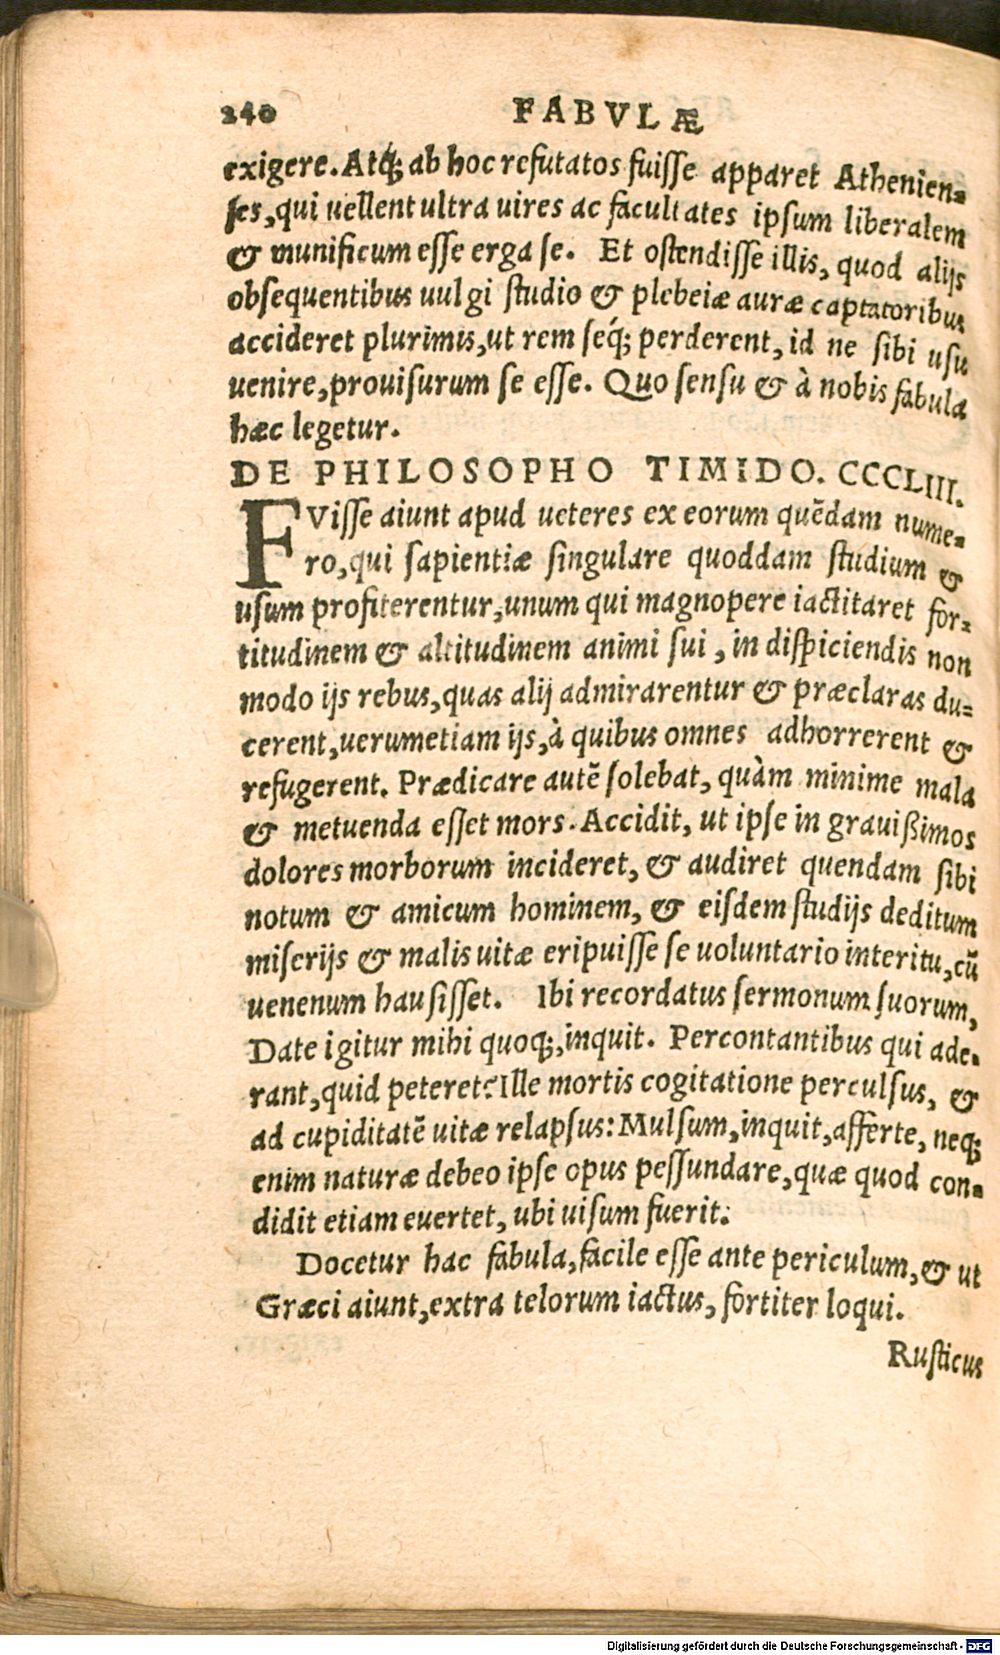 240 FABVLÆ
exigere. Atq; ab hoc refutatos fuisse apparet Athenien-
ses, qui uellent ultra uires ac facultates ipsum liberalem
& munificum esse erga se. Et ostendisse illis, quod alijs
obsequentibus uulgi studio & plebeiæ auræ captatoribus
accideret plurimis, ut rem seq́; perderent, id ne sibi usu
uenire, prouisurum se esse. Quo sensu & à nobis fabula
hæc legetur.
DE PHILOSOPHO TIMIDO. CCCLIII.
FVisse aiunt apud ueteres ex eorum quēdam nume-
ro, qui sapientiæ singulare quoddam studium &
usum profiterentur, unum qui magnopere iactitaret for-
titudinem & altitudinem animi sui, in dispiciendis non
modo ijs rebus, quas alij admirarentur & præclaras du-
cerent, uerumetiam ijs, à quibus omnes adhorrerent &
refugerent. Prædicare autē solebat, quàm minime mala
& metuenda esset mors. Accidit, ut ipse in grauißimos
dolores morborum incideret, & audiret quendam sibi
notum & amicum hominem, & eisdem studijs deditum
miserijs & malis uitæ eripuisse se uoluntario interitu, cū
uenenum hausisset. Ibi recordatus sermonum suorum,
Date igitur mihi quoq;, inquit. Percontantibus qui ade-
rant, quid peteret? Ille mortis cogitatione perculsus, &
ad cupiditatē uitæ relapsus: Mulsum, inquit, afferte, neq;
enim naturæ debeo ipse opus pessundare, quæ quod con-
didit etiam euertet, ubi uisum fuerit.
Docetur hac fabula, facile esse ante periculum, & ut
Græci aiunt, extra telorum iactus, fortiter loqui.
Rusticus
Digitalisierung gefördert durch die Deutsche Forschungsgemeinschaft - DFG